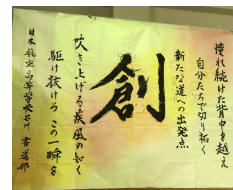 憧れ続けた背中を越え
自分たちで切り拓く
新たな道への出発点
創
吹き上げる疾風の如く
駆け抜けろ この一瞬を
日本航空高等学校石川 書道部